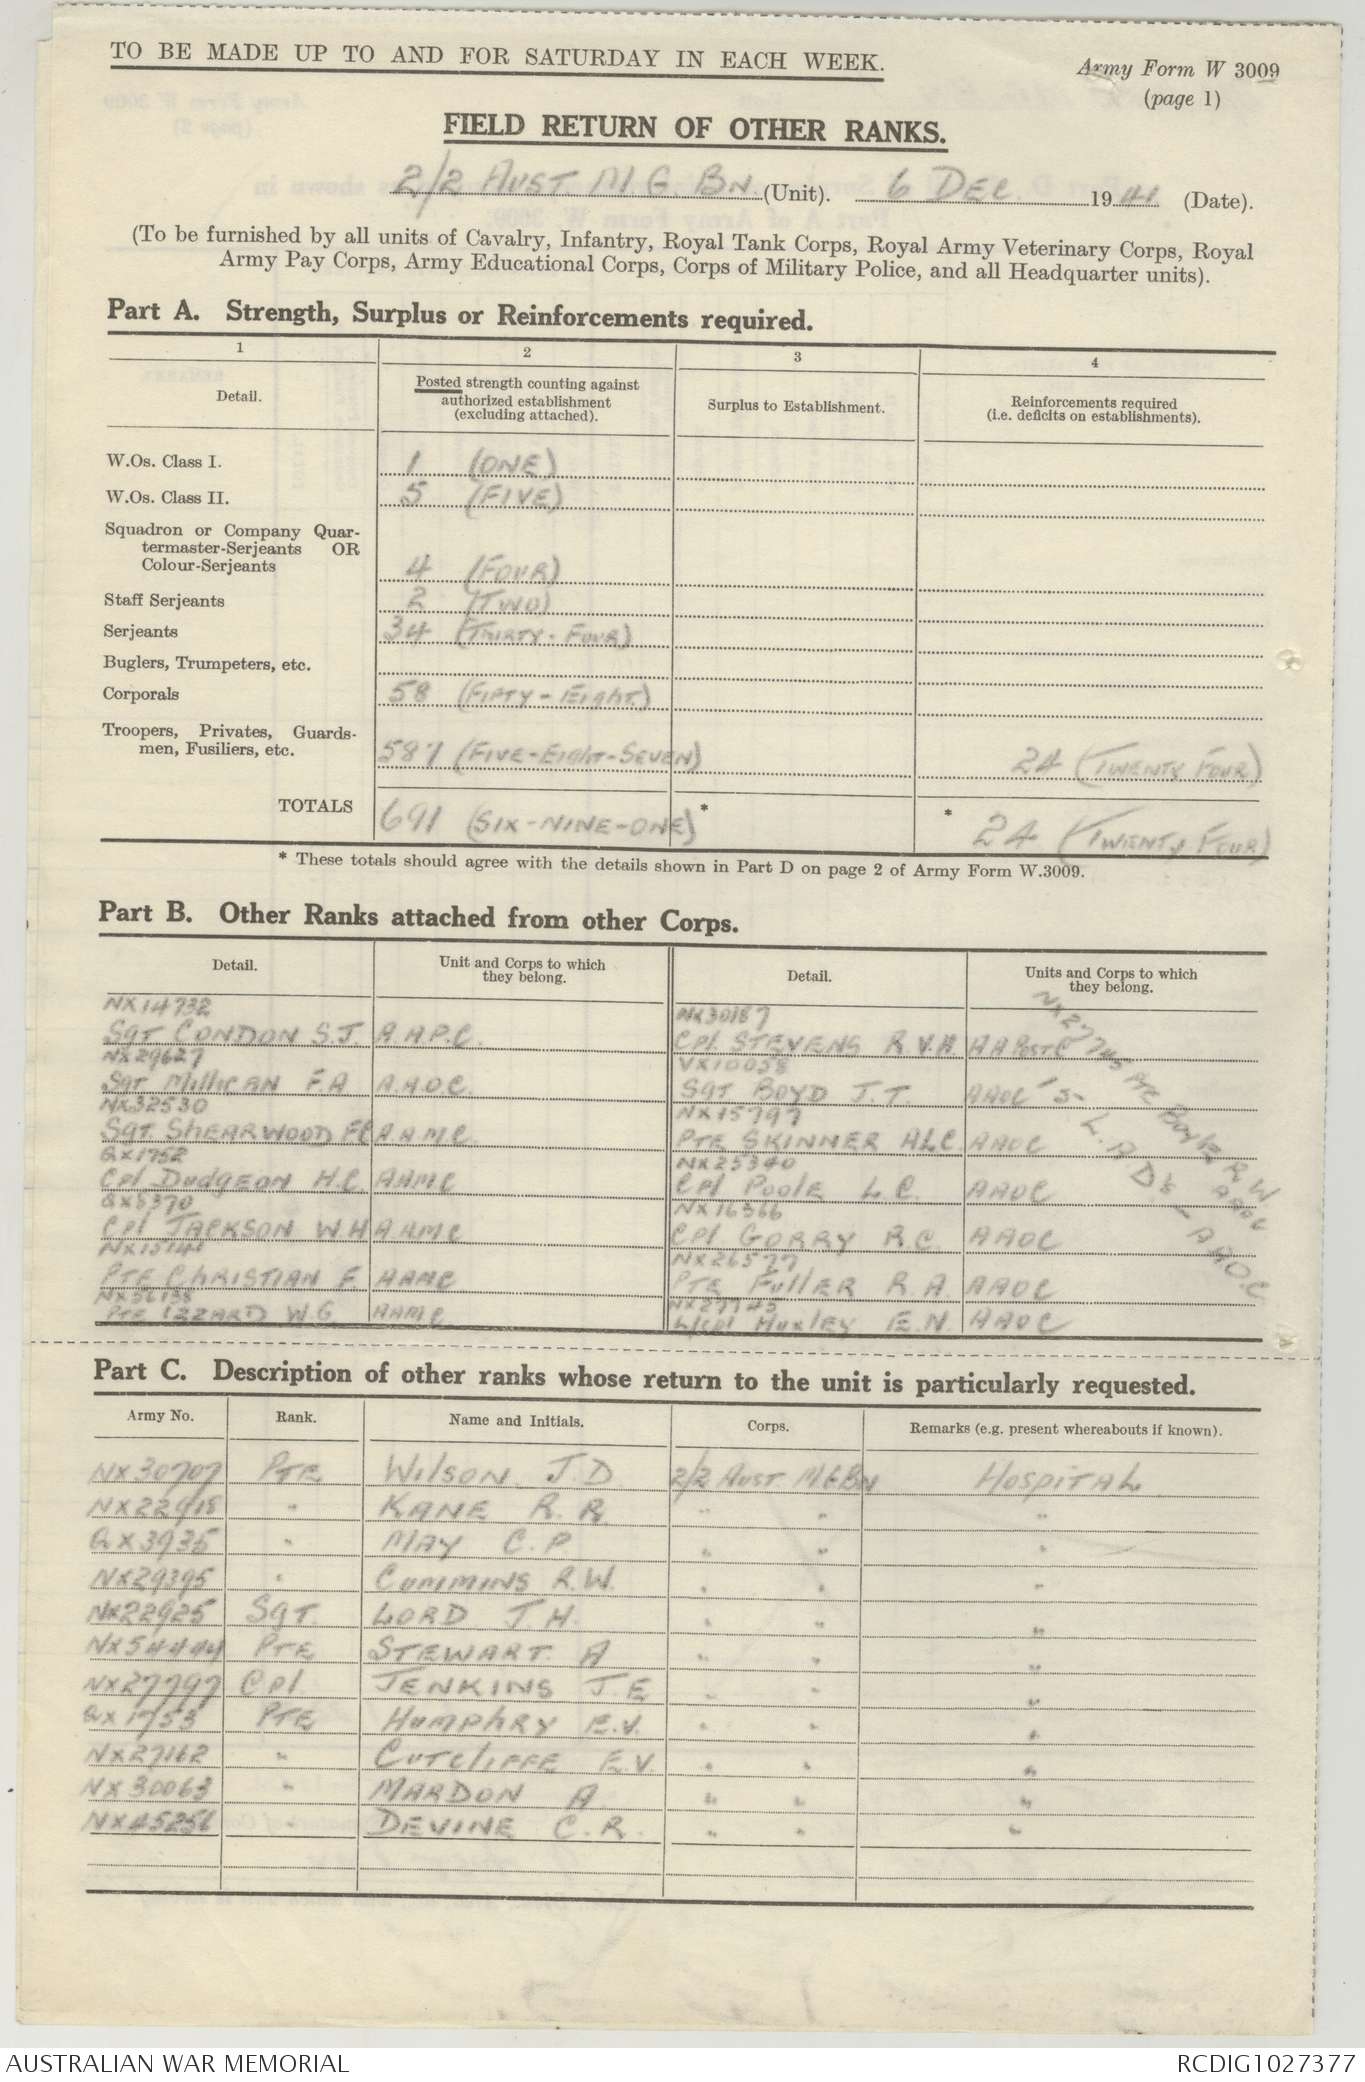 TO BE MADE UP TO AND FOR SATURDAY IN EACH WEEK.
Army Form W 3009
(page 1)
FIELD RETURN OF OTHER RANKS.
2/2 AUST. M G. BN (Unit). 6 DEC. 1941 (Date).
(To be furnished by all units of Cavalry, Infantry, Royal Tank Corps, Royal Army Veterinary Corps, Royal
Army Pay Corps, Army Educational Corps, Corps of Military Police, and all Headquarter units).
Part A. Strength, Surplus or Reinforcements required.
1 2 3 4
Detail.
Posted strength counting against
authorized establishment
(excluding attached).
Surplus to Establishment.
Reinforcements required
(i.e. deficits on establishments).
W.Os. Class I. 1 (ONE)
W.Os. Class II. 5 (FIVE)
Squadron or Company Quar-
termaster-Serjeants OR
Colour-Serjeants 4 (FOUR)
Staff Serjeants 2 (TWO)
Serjeants 34 (THIRTY-FOUR)
Buglers, Trumpeters, etc.
Corporals 58 (FIFTY-EIGHT)
Troopers, Privates, Guards-
men, Fusiliers, etc. 587 (FIVE-EIGHT-SEVEN) 24 (TWENTY FOUR)
TOTALS 691 (SIX-NINE-ONE) * * 24 (TWENTY FOUR)
* These totals should agree with the details shown in Part D on page 2 of Army Form W.3009.
Part B. Other Ranks attached from other Corps.
Detail.
Unit and Corps to which
they belong.
NX14732
Sgt CONDON S.J. A.A.P.C.
NX29627
Sgt MILLICAN F.A A.A.O.C.
NX32530
Sgt. SHEARWOOD FC A.A.M.C.
QX1752
Cpl DUDGEON H.C. AAMC
QX5370
Cpl JACKSON W.H A.A.M.C
PTE CHRISTIAN F. AAMC
NX56138
PTE IZZARD W.G AAMC
Detail.
Units and Corps to which
they belong.
NX30187
Cpl STEVENS R.V.H. AA POST C
VX10058
SGT BOYD J.T. AAOC
NX15797
PTE SKINNER ALC. AAOC
NX25340
Cpl POOLE L.C. AAOC
NX16366
Cpl GORRY R.C. AAOC
NX26577
PTE FULLER R.A. AAOC
NX27745
L/Cpl HUXLEY E.N. AAOC
R W
AAOC
L.A.D's - AAOC
Part C. Description of other ranks whose return to the unit is particularly requested.
Army No. Rank. Name and Initials. Corps. Remarks (e.g. present whereabouts if known).
NX30707 PTE WILSON J.D 2/2 AUST M/G BN HOSPITAL
NX22918 " KANE R.R. " " "
QX3935 " MAY C.P " " "
NX29395 " CUMMINS R.W. " " "
NX22925 SGT. LORD J.H. " " "
NX54444 PTE STEWART. A " " "
NX27797 Cpl JENKINS J.E " " "
QX1753 PTE HUMPHRY E.V. " " "
NX27112 " CUTCLIFFE E.V. " " "
NX30063 " MARDON A " " "
NX45256 " DEVINE C.R. " " "
AUSTRALIAN WAR MEMORIAL
RCDIG1027377